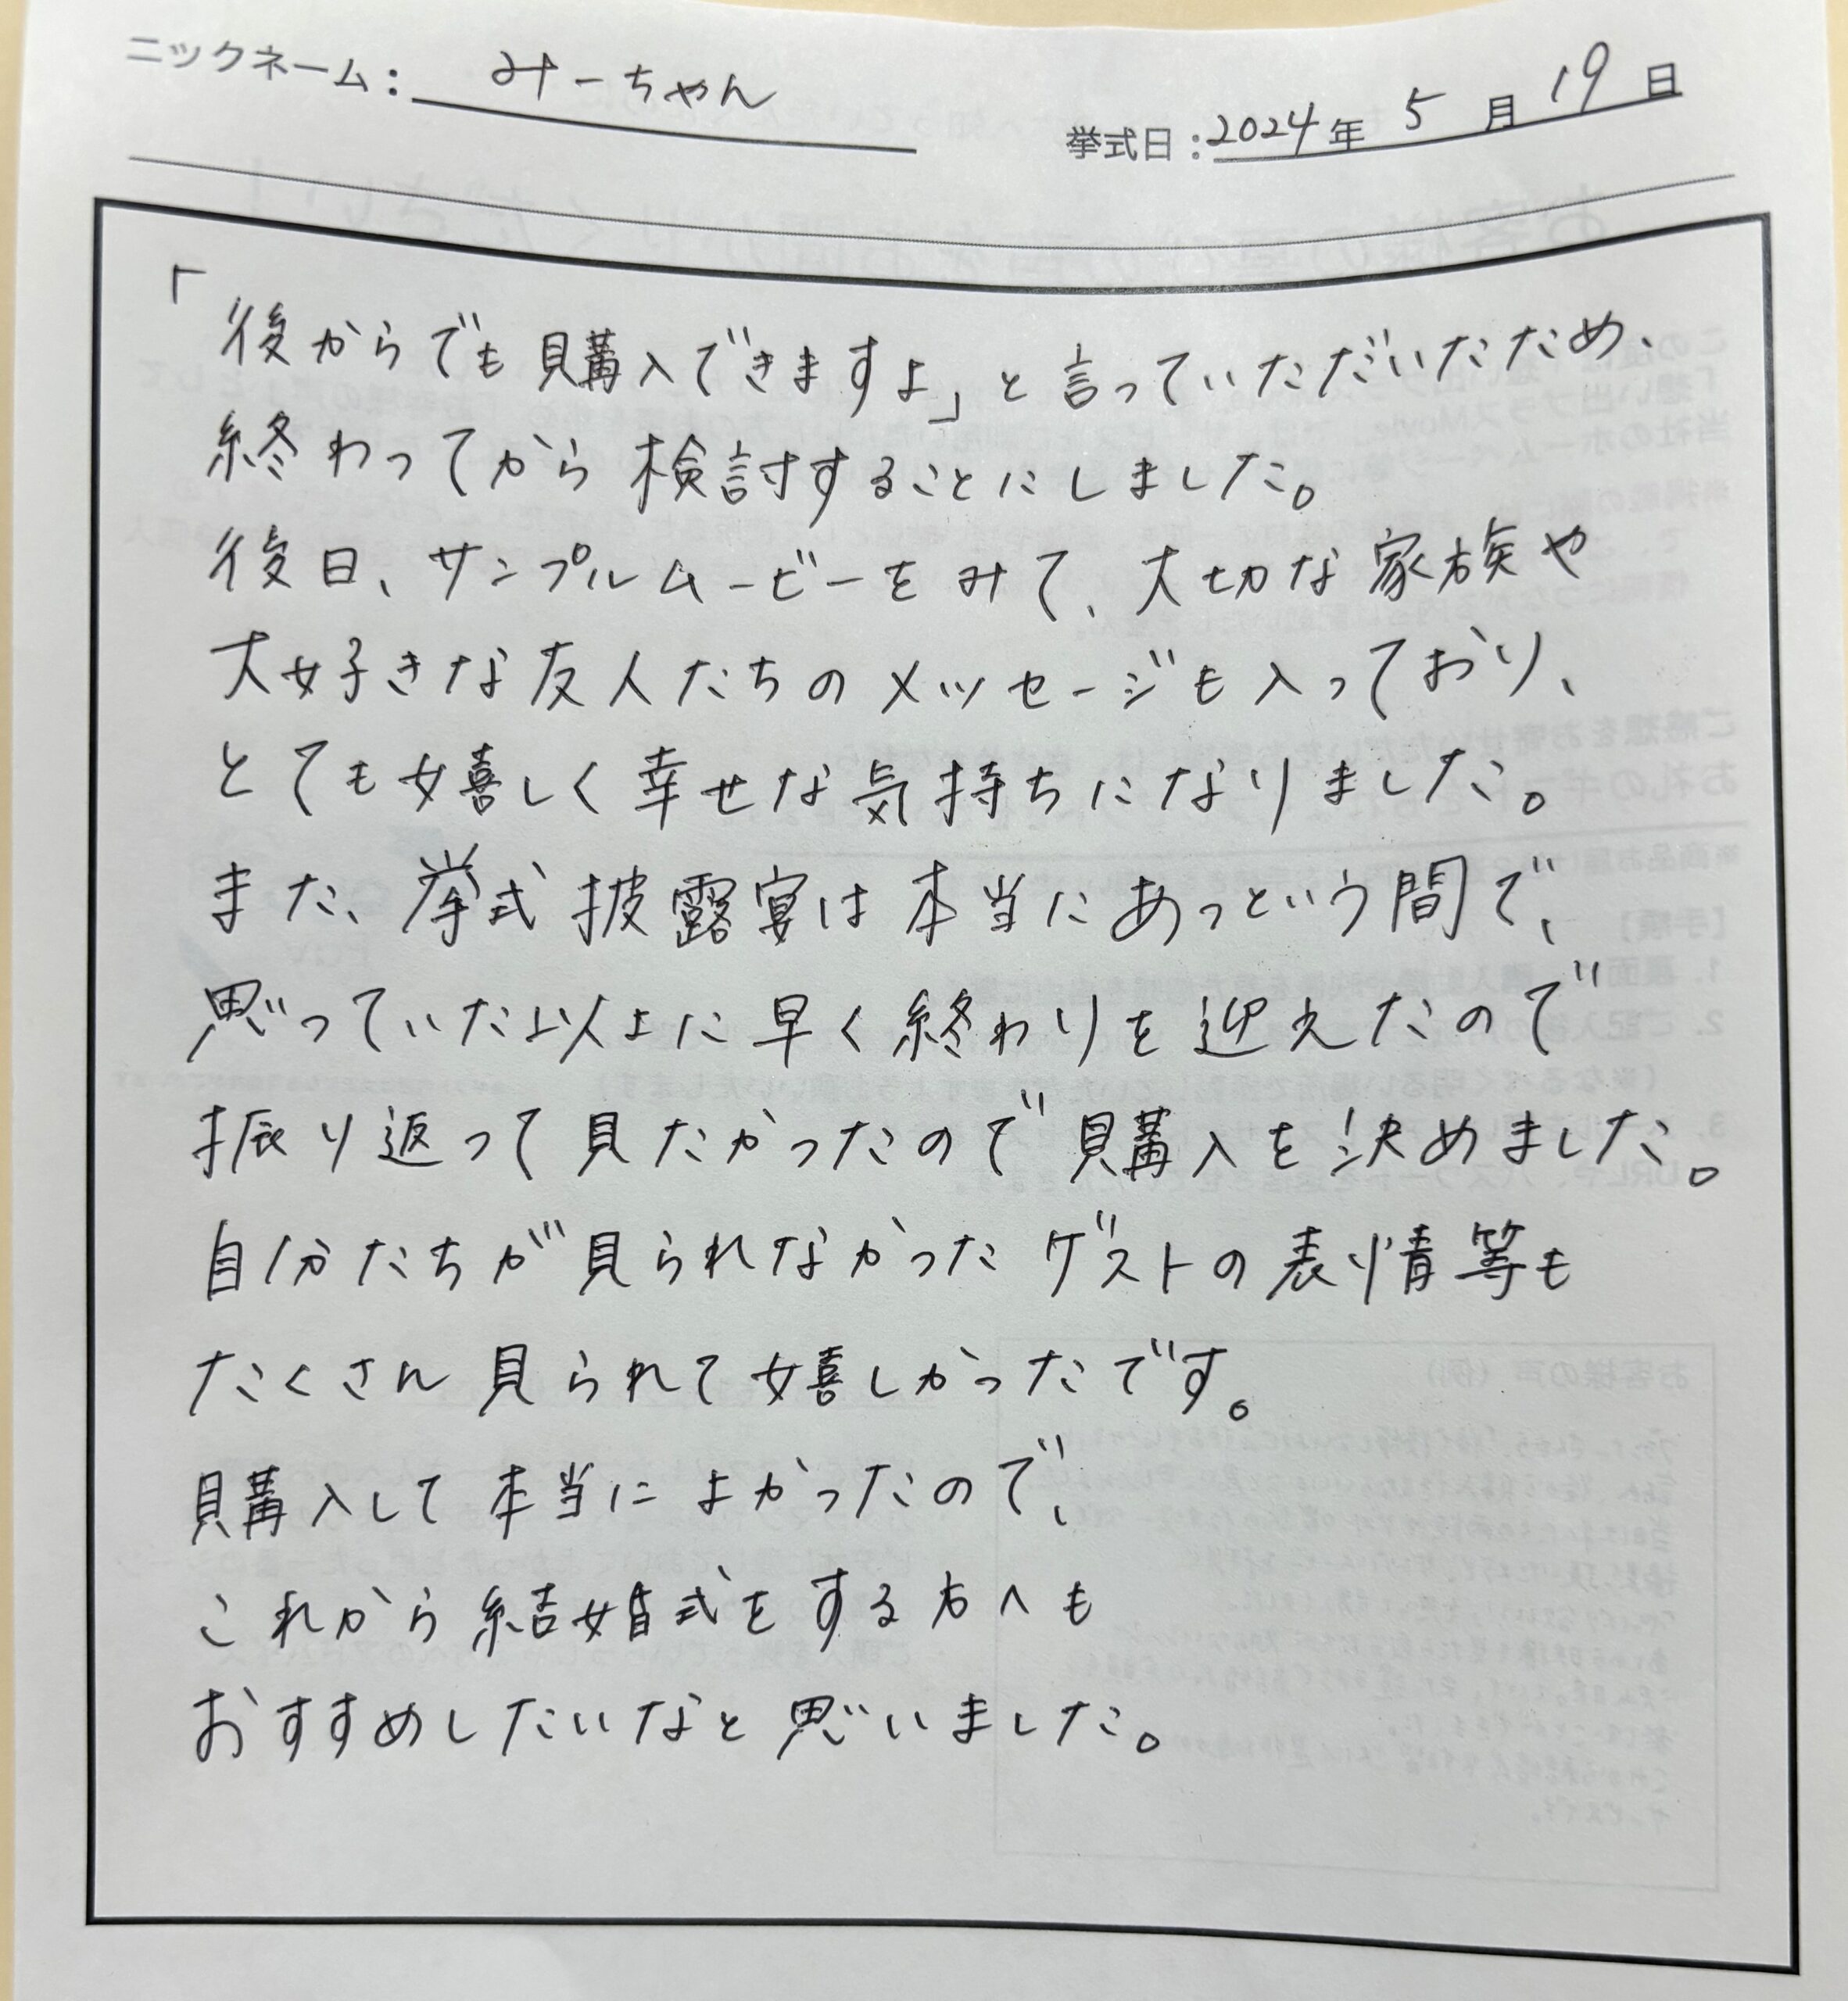 ニックネーム: みーちゃん
挙式日:2024年 5月 19日
「後からでも購入できますよ」と言っていただいたため、
終わってから検討することにしました。
後日、サンプルムービーをみて、大切な家族や
大好きな友人たちのメッセージも入っており、
とても嬉しく幸せな気持ちになりました。
また、挙式披露宴は本当にあっという間で、
思っていた以上に早く終わりを迎えたので
振り返って見たかったので購入を決めました。
自分たちが見られなかったゲストの表情等も
たくさん見られて嬉しかったです。
購入して本当によかったので、
これから結婚式をする方へも
おすすめしたいなと思いました。